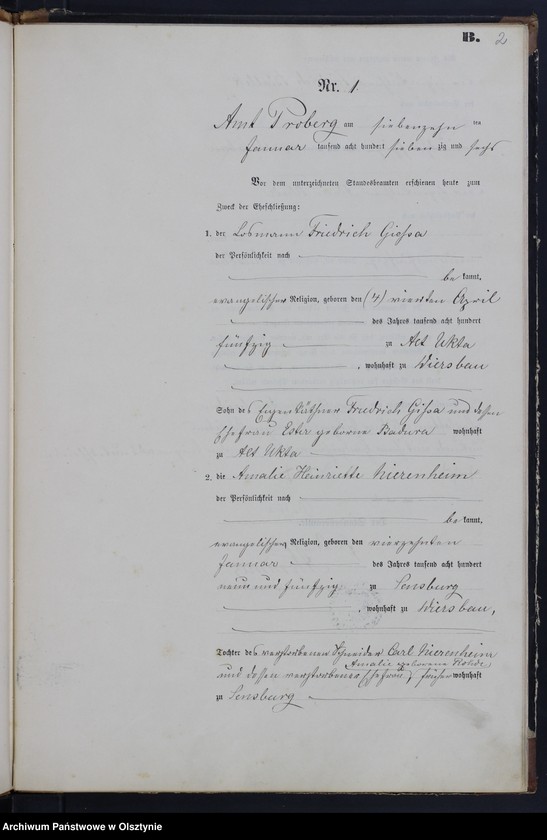 B. 2
Nr. 1
Amt Proberg am siebenzehn ten
Januar tausend acht hundert sieben zig und sechs
Vor dem unterzeichneten Standesbeamten erschienen heute zum
Zweck der Eheschließung:
1. der Losmann Friedrich
der Persönlichkeit nach
be kannt,
evangelischer Religion, geboren den (4) vierten April
des Jahres tausend acht hundert
fünfzig zu Alt Ukta
, wohnhaft zu Wiersbau
Sohn des Eigenkäthner Friedrich und dessen
Ehefrau geborne Badura wohnhaft
zu Alt Ukta
2. die Amalie Heinriette Nierenheim
der Persönlichkeit nach
be kannt,
evangelischen Religion, geboren den vierzehnten
Januar des Jahres tausend acht hundert
neun und fünfzig zu Sensburg
, wohnhaft zu Wiersbau,
Tochter des verstorbenen Schneider Carl Nierenheim
Amalie geborene Rohde
und dessen verstorbener Ehefrau früher wohnhaft
zu Sensburg
Archiwum Państwowe w Olsztynie